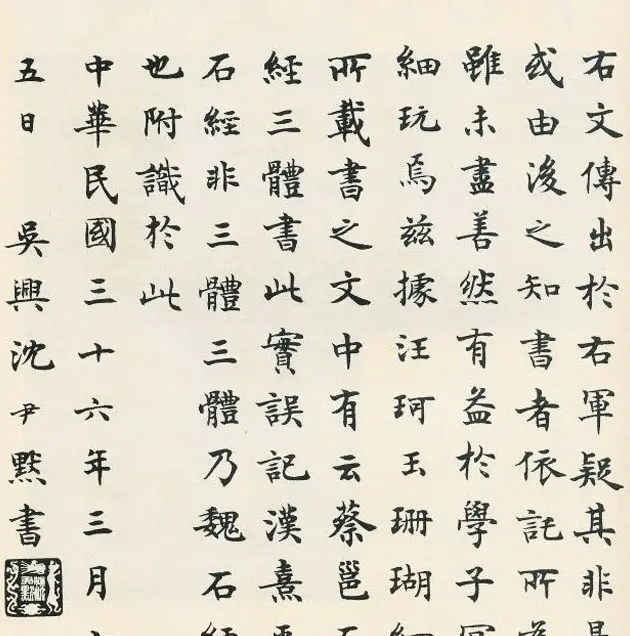 右文傳出於右軍疑其非
或由後之知書者依託所
雖未盡善然有益於學子
細玩焉茲據汪珂玉珊瑚
所載書之文中有云蔡邕
經三體書此實誤記漢熹
石經非三體三體乃魏石
也附識於此
中華民國三十六年三月
五日 吳興沈尹默書